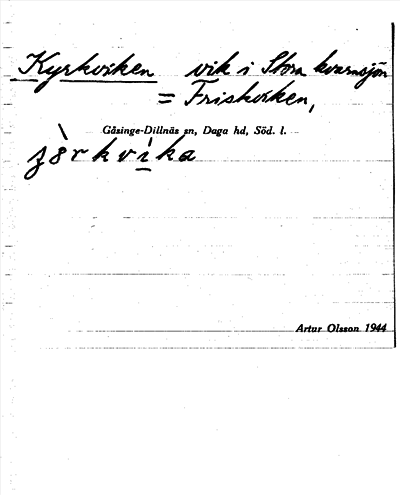 Kyrkviken vik i Stora kvarnsjön
= Friskviken,
Gåsinge-Dillnäs sn, Daga hd, Söd. l.
Artur Olsson 1944